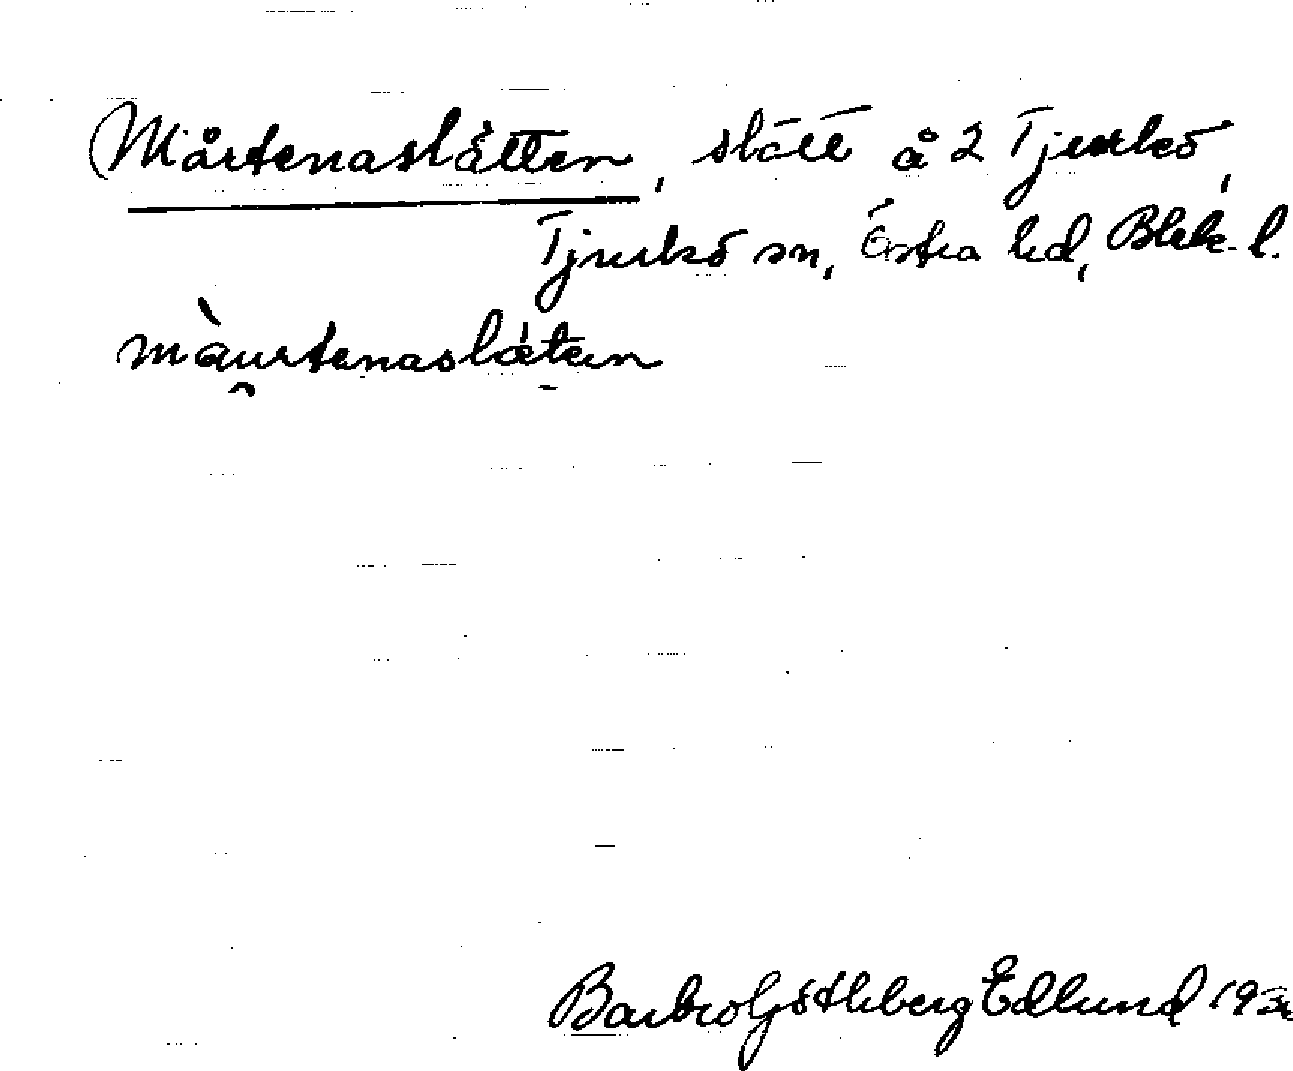 Mårtenaslätten, slätt å 2 Tjurkö,
Tjurkö sn, Östra hd, Blek. l.
màurtenaslätен
Barbro Göthberg Edlund